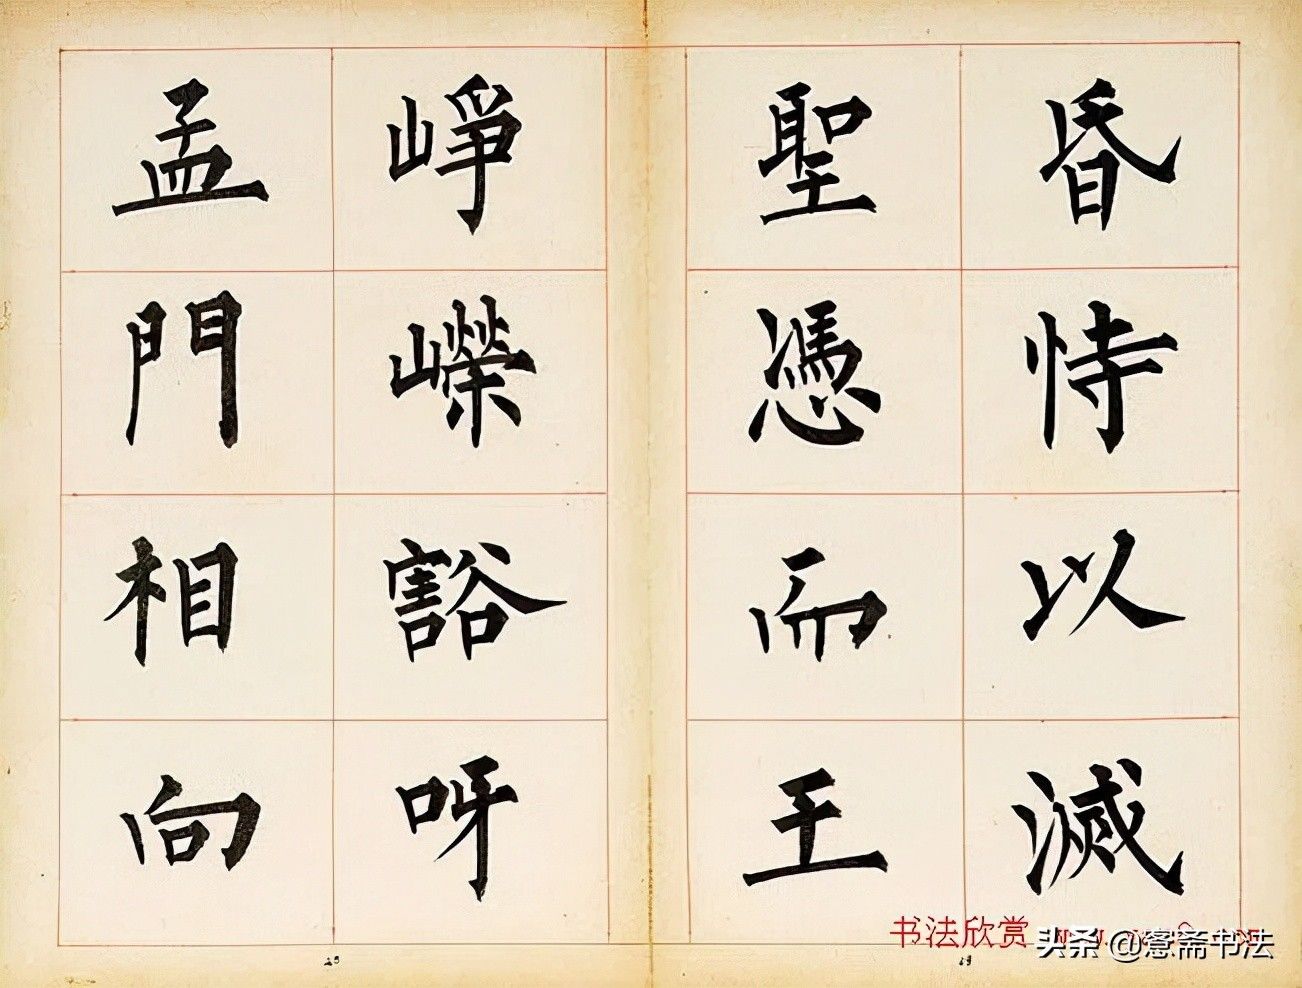 昏恃以滅
聖憑而王
崢嶸豁呀
孟門相向
书法欣赏
头条 @愙斋书法
19